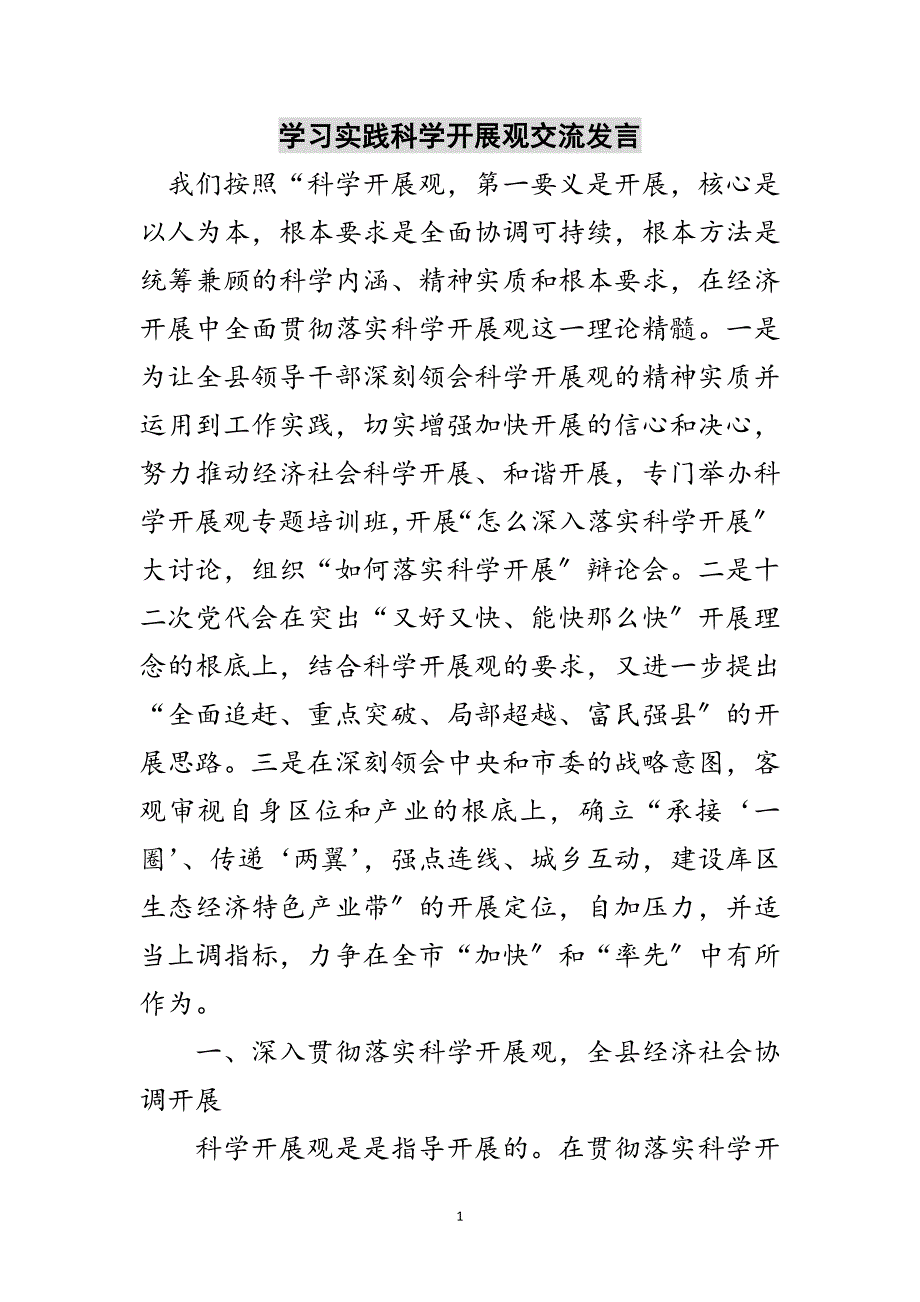 学习实践科学开展观交流发言
我们按照“科学开展观，第一要义是开展，核心是
以人为本，根本要求是全面协调可持续，根本方法是
统筹兼顾的科学内涵、精神实质和根本要求，在经济
开展中全面贯彻落实科学开展观这一理论精髓。一是
为让全县领导干部深刻领会科学开展观的精神实质并
运用到工作实践，切实增强加快开展的信心和决心，
努力推动经济社会科学开展、和谐开展，专门举办科
学开展观专题培训班,开展“怎么深入落实科学开展〞
大讨论，组织“如何落实科学开展〞辩论会。二是十
二次党代会在突出“又好又快、能快那么快〞开展理
念的根底上，结合科学开展观的要求，又进一步提出
“全面追赶、重点突破、局部超越、富民强县〞的开
展思路。三是在深刻领会中央和市委的战略意图，客
观审视自身区位和产业的根底上，确立“承接‘一
圈’、传递‘两翼’，强点连线、城乡互动，建设库区
生态经济特色产业带〞的开展定位，自加压力，并适
当上调指标，力争在全市“加快〞和“率先〞中有所
作为。
一、深入贯彻落实科学开展观，全县经济社会协
调开展
科学开展观是是指导开展的。在贯彻落实科学开
1